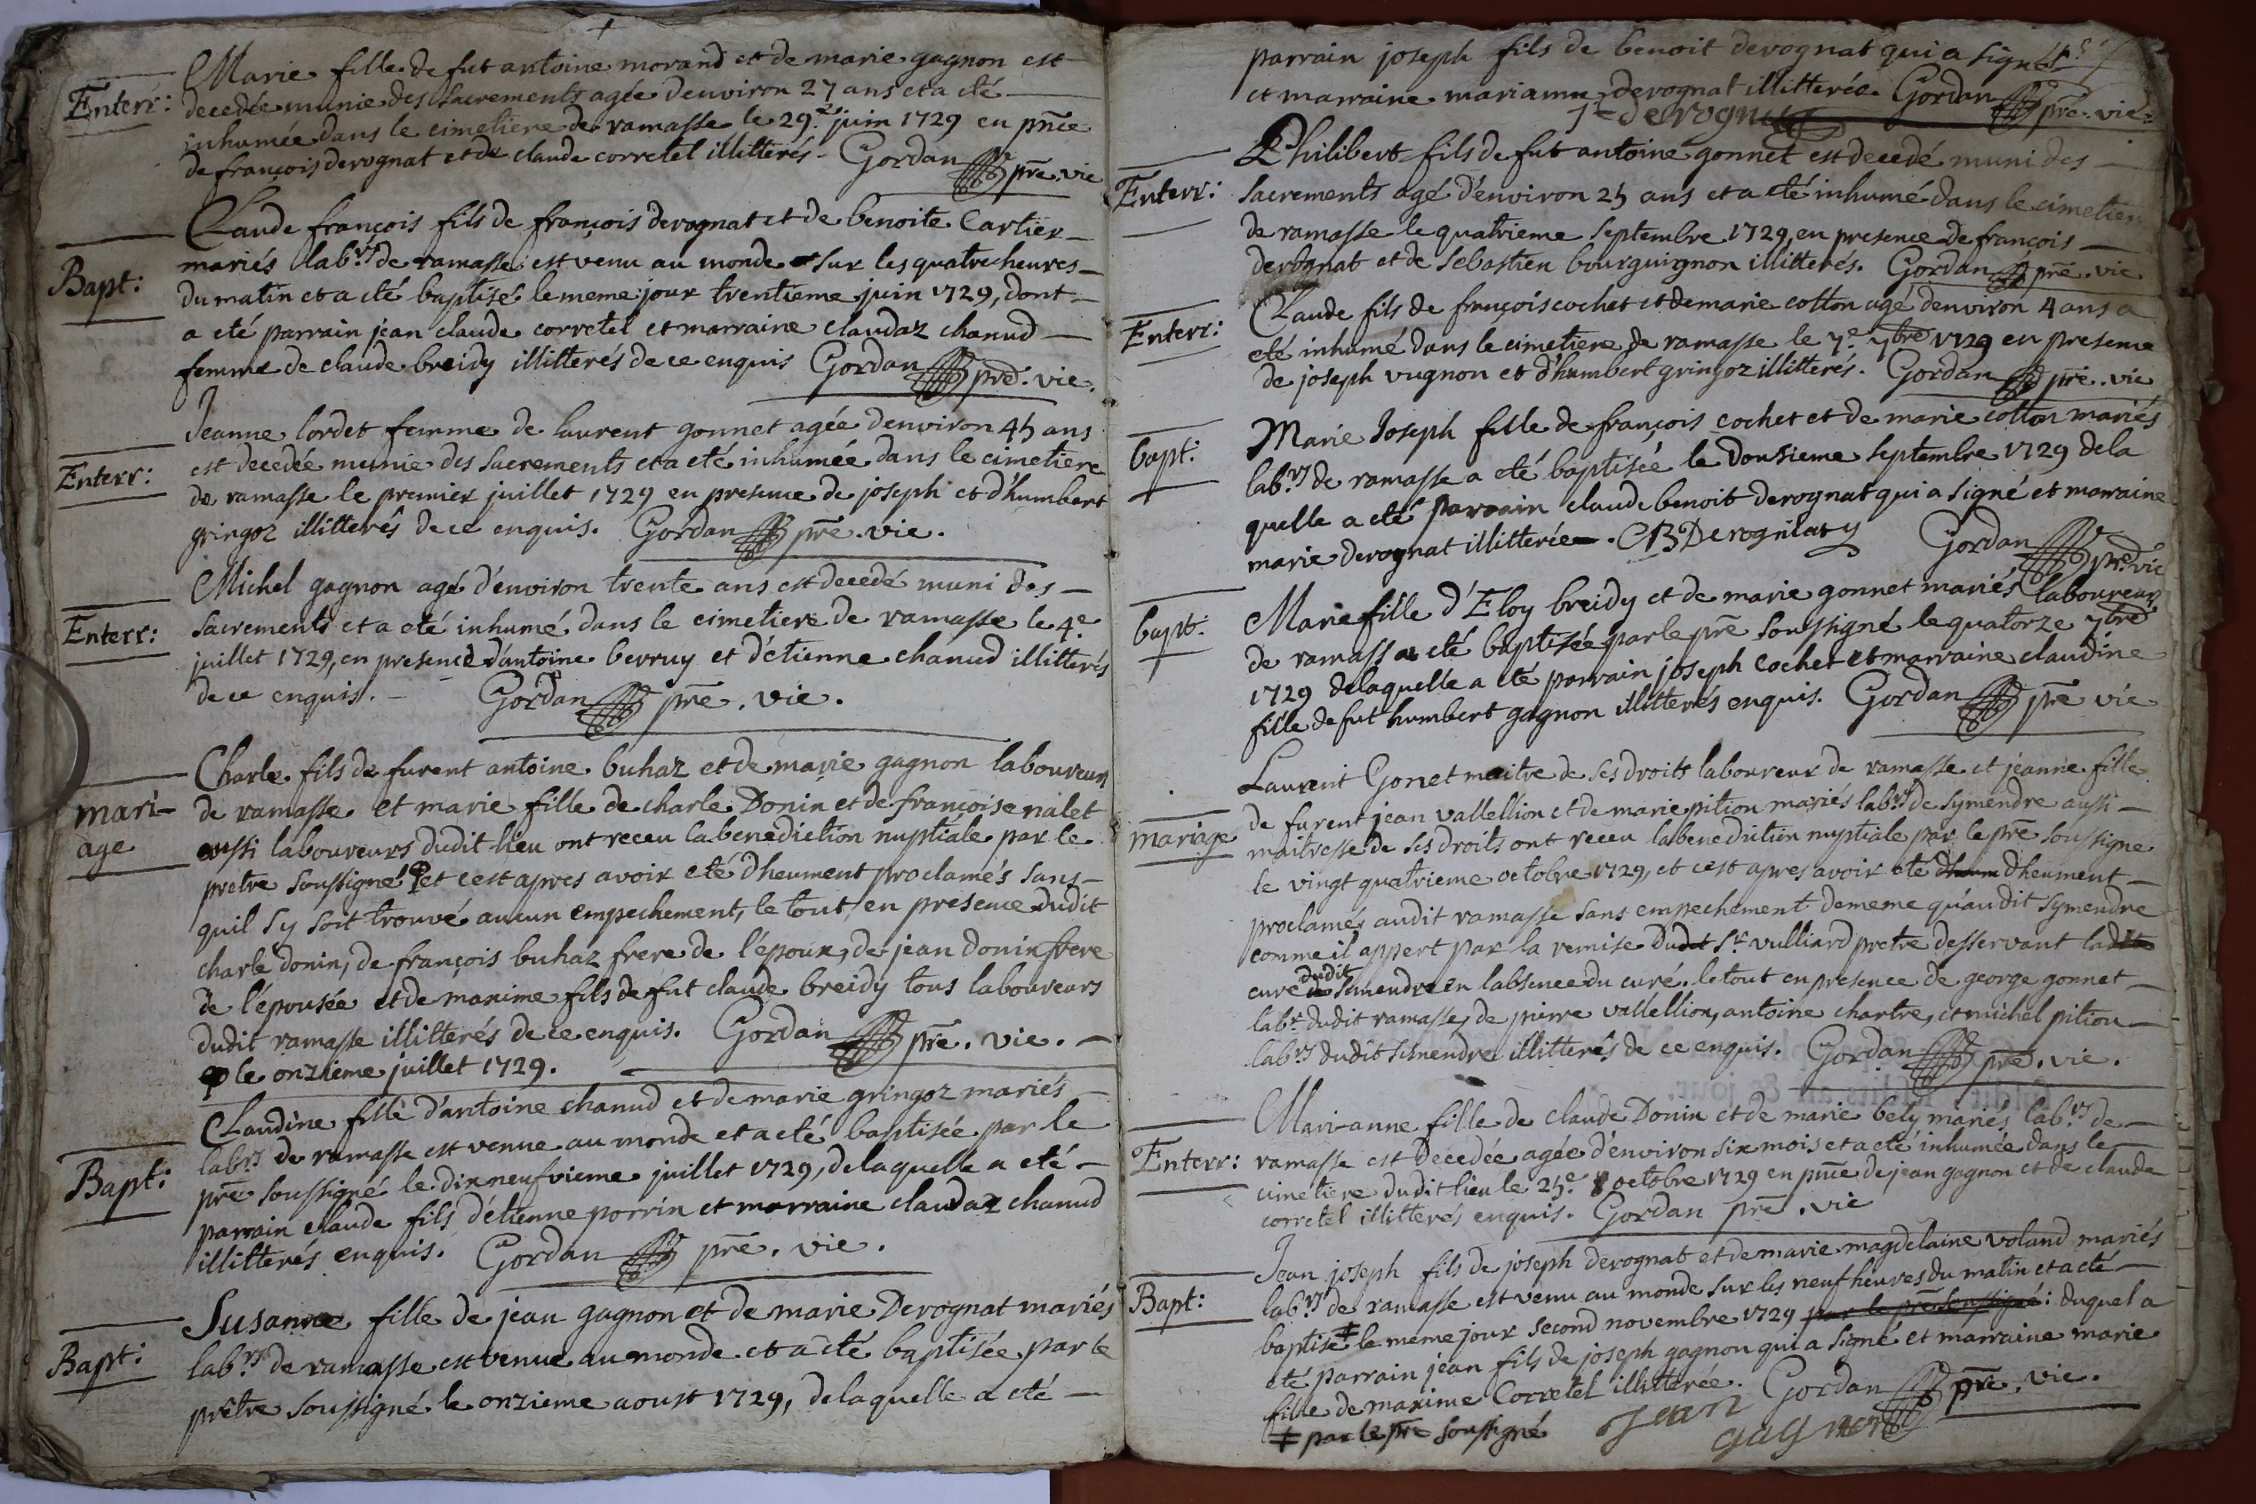 Enterr:
Marie fille de fut antoine morand et de marie gagnon est
decedée munie des sacrements agée d'environ 27 ans et a eté
inhumée dans le cimetiere de ramasse le 29e juin 1729 en pnce
de françois derognat et de claude corretel illitterés. Gordan pre. vie
Bapt:
Claude françois fils de françois derognat et de benoite Cartier
mariés labrs de ramasse est venu au monde sur les quatre heures
du matin et a eté baptisé le meme jour trentieme juin 1729, dont
a eté parrain jean claude corretel et marraine claudaz chanud
femme de claude breidy illitterés de ce enquis Gordan pre. vie.
Enterr:
Jeanne lordet femme de laurent gonnet agée d'environ 45 ans
est decedée munie des sacrements et a eté inhumée dans le cimetiere
de ramasse le premier juillet 1729 en presence de joseph et d'humbert
gringoz illitterés de ce enquis. Gordan pre. vie.
Enterr:
Michel gagnon agé d'environ trente ans est decedé muni des
sacrements et a eté inhumé dans le cimetiere de ramasse le 4e
juillet 1729, en presence d'antoine berruy et d'étienne chanud illitterés
de ce enquis. Gordan pre. vie.
mari-
age
Charle fils de furent antoine buhaz et de marie gagnon laboureur
de ramasse et marie fille de charle Donin et de françoise nalet
aussi laboureurs dudit lieu ont receu la benediction nuptiale par le
pretre soussigné et c'est apres avoir eté dheument proclamés sans
quil s'y soit trouvé aucun empechement, le tout en presence dudit
charle donin, de françois buhaz frere de l'époux, de jean donin frere
de l'épousée et de maxime fils de fut claude breidy tous laboureurs
dudit ramasse illitterés de ce enquis. Gordan pre. vie.
le onzieme juillet 1729.
Bapt:
Claudine fille d'antoine chanud et de marie gringoz mariés
labrs de ramasse est venue au monde et a eté baptisée par le
pre soussigné le dixneufvieme juillet 1729, de laquelle a eté
parrain claude fils d'étienne porrin et marraine claudaz chanud
illitterés enquis. Gordan pre. vie.
Bapt:
Susanne fille de jean gagnon et de marie Derognat mariés
labrs de ramasse est venue au monde et a eté baptisée par le
prêtre soussigné le onzieme aoust 1729, de laquelle a eté
parrain joseph fils de benoit derognat qui a signé
et marraine marianne derognat illitterée. Gordan pre. vie.
derognat
Enterr:
Philibert fils de fut antoine gonnet est decedé muni des
sacrements agé d'environ 25 ans et a eté inhumé dans le cimetiere
de ramasse le quatrieme septembre 1729, en presence de françois
derognat et de sebastien bourguignon illitterés. Gordan pre. vie
Enterr:
Claude fils de françois cochet et de marie cotton agé d'environ 4 ans a
eté inhumé dans le cimetiere de ramasse le 7e 7bre 1729 en presence
de joseph vugnon et d'humbert gringoz illitterés. Gordan pre. vie
bapt:
Marie Joseph fille de françois cochet et de marie cotton mariés
labrs de ramasse a eté baptisée le douzieme septembre 1729 de la
quelle a eté parrain claude benoit derognat qui a signé et marraine
marie derognat illitterée. CB Derognat Gordan pre. vie
bapt:
Marie fille d'Eloy breidy et de marie gonnet mariés laboureur
de ramasse a eté baptisée par le pre soussigné le quatorze 7bre
1729 de laquelle a eté parrain joseph cochet et marraine claudine
fille de fut humbert gagnon illitterés enquis. Gordan pre vie
mariage
Laurent Gonet maitre de ses droits laboureur de ramasse et jeanne fille
de furent jean vallellion et de marie pition mariés labrs de symendre aussi
maitresse de ses droits ont receu la benediction nuptiale par le pre soussigné
le vingt quatrieme octobre 1729, et c'est apres avoir eté dheument
proclames audit ramasse sans empechement de meme qu'audit symendre
comme il appert par la remise dudit Sr vulliard pretre desservant ladite
cure dudit simendre en l'absence du curé. le tout en presence de george gonnet
labr dudit ramasse, de pierre vallellion, antoine chartre, et michel pition
labrs dudit simendre illitterés de ce enquis. Gordan pre. vie.
Enterr:
Mari-anne fille de claude Donin et de marie bely mariés labrs de
ramasse est decedée agée d'environ six mois et a eté inhumée dans le
cimetiere dudit lieu le 25e octobre 1729 en pnce de jean gagnon et de claude
corretel illitterés enquis. Gordan pre. vie
Bapt:
Jean joseph fils de joseph derognat et de marie magdelaine voland mariés
labrs de ramasse est venu au monde sur les neuf heures du matin et a eté
baptisé le meme jour second novembre 1729 par le pre soussigné: duquel a
eté parrain jean fils de joseph gagnon qui a signé et marraine marie
fille de maxime Corretel illitterée. Gordan pre. vie.
par le pre soussigné jean
gagnon